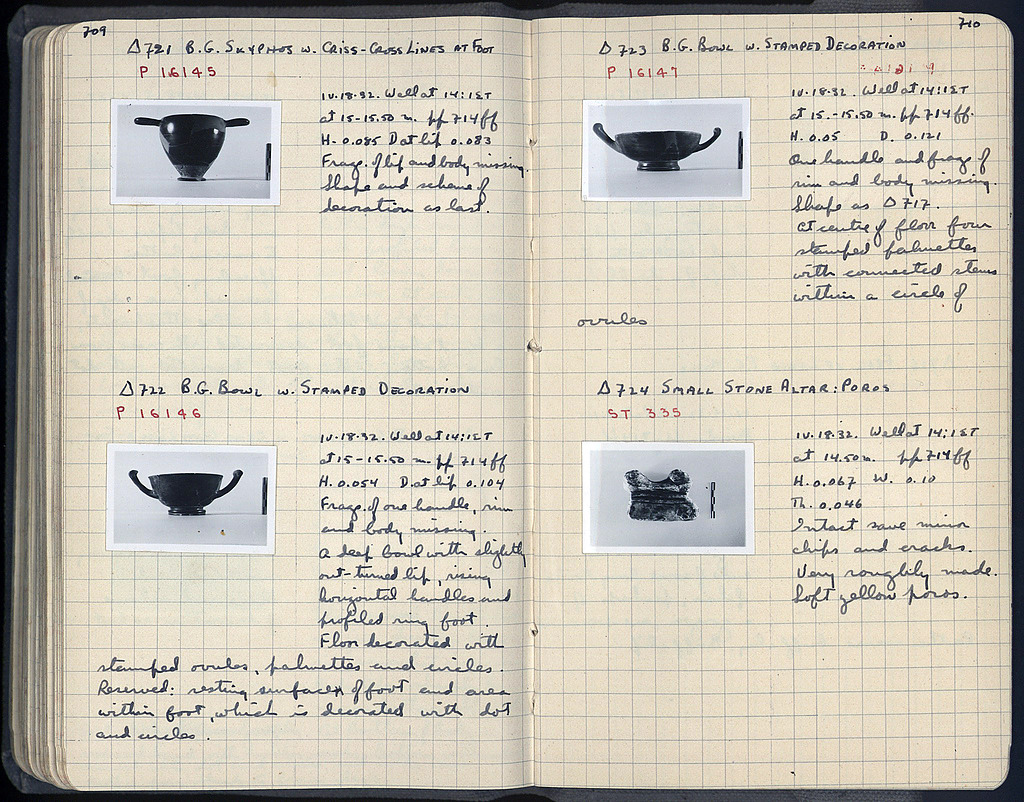 709
Δ721 B.G. SKYPHOS W. CRISS-CROSS LINES AT FOOT
P 16145
IV.18.32. Well at 14:1ET
at 15-15.50 m. pp 714 ff
H. 0.085 D at lip 0.083
Frags. of lip and body missing.
Shape and scheme of
decoration as last.
Δ722 B.G. BOWL W. STAMPED DECORATION
P 16146
IV.18.32. Well at 14:1ET
at 15-15.50 m. pp 714 ff
H. 0.054 D. at lip 0.104
Frags. of one handle, rim
and body missing.
A deep bowl with slightly
out-turned lip, rising
horizontal handles and
profiled ring foot.
Floor decorated with
stamped ovules, palmettes and circles.
Reserved: resting surface of foot and area
within foot, which is decorated with dot
and circles.
710
Δ723 B.G. BOWL W. STAMPED DECORATION
P 16147
IV.18.32. Well at 14:1ET
at 15.-15.50 m. pp 714 ff.
H. 0.05 D. 0.121
One handle and frags of
rim and body missing.
Shape as Δ717.
At centre of floor four
stamped palmettes
with connected stems
within a circle of
ovules
Δ724 SMALL STONE ALTAR: POROS
ST 335
IV.18.32. Well at 14:1ET
at 14.50 m. pp 714 ff
H. 0.067 W. 0.10
Th. 0.046
Intact save minor
chips and cracks.
Very roughly made.
Soft yellow poros.